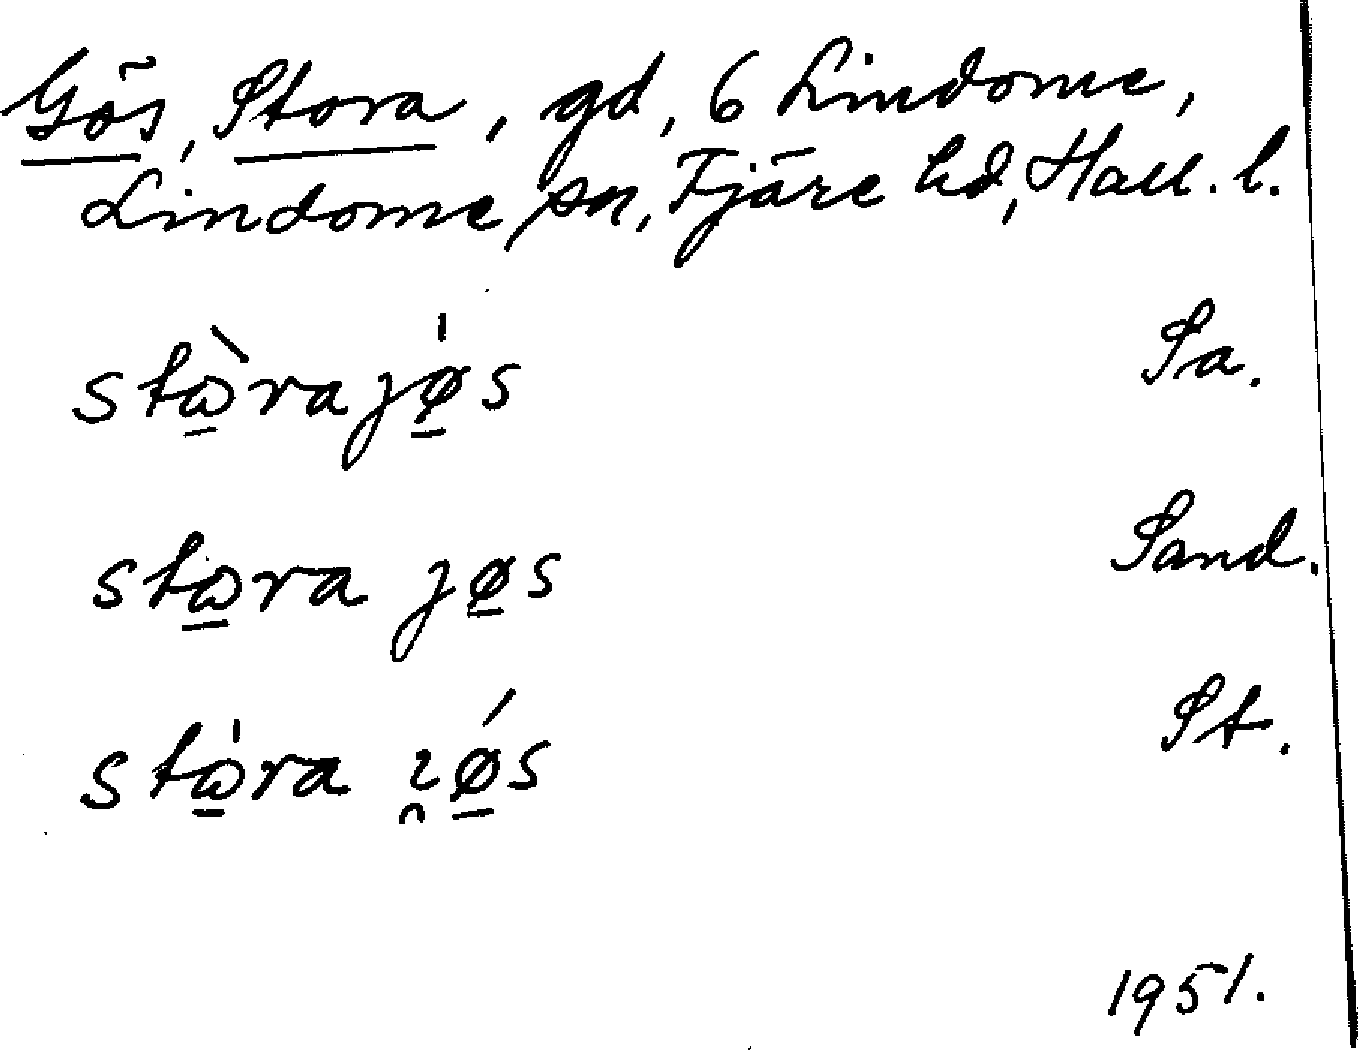 Gös, Stora, gd, 6 Lindome,
Lindome sn, Fjäre hd, Hall. l.
stὼ̲ra jø̲̍s Sa.
stω̲ra jø̲s Sand.
stω̲̍ra ɿ̯ǿ̲s St.
1951.